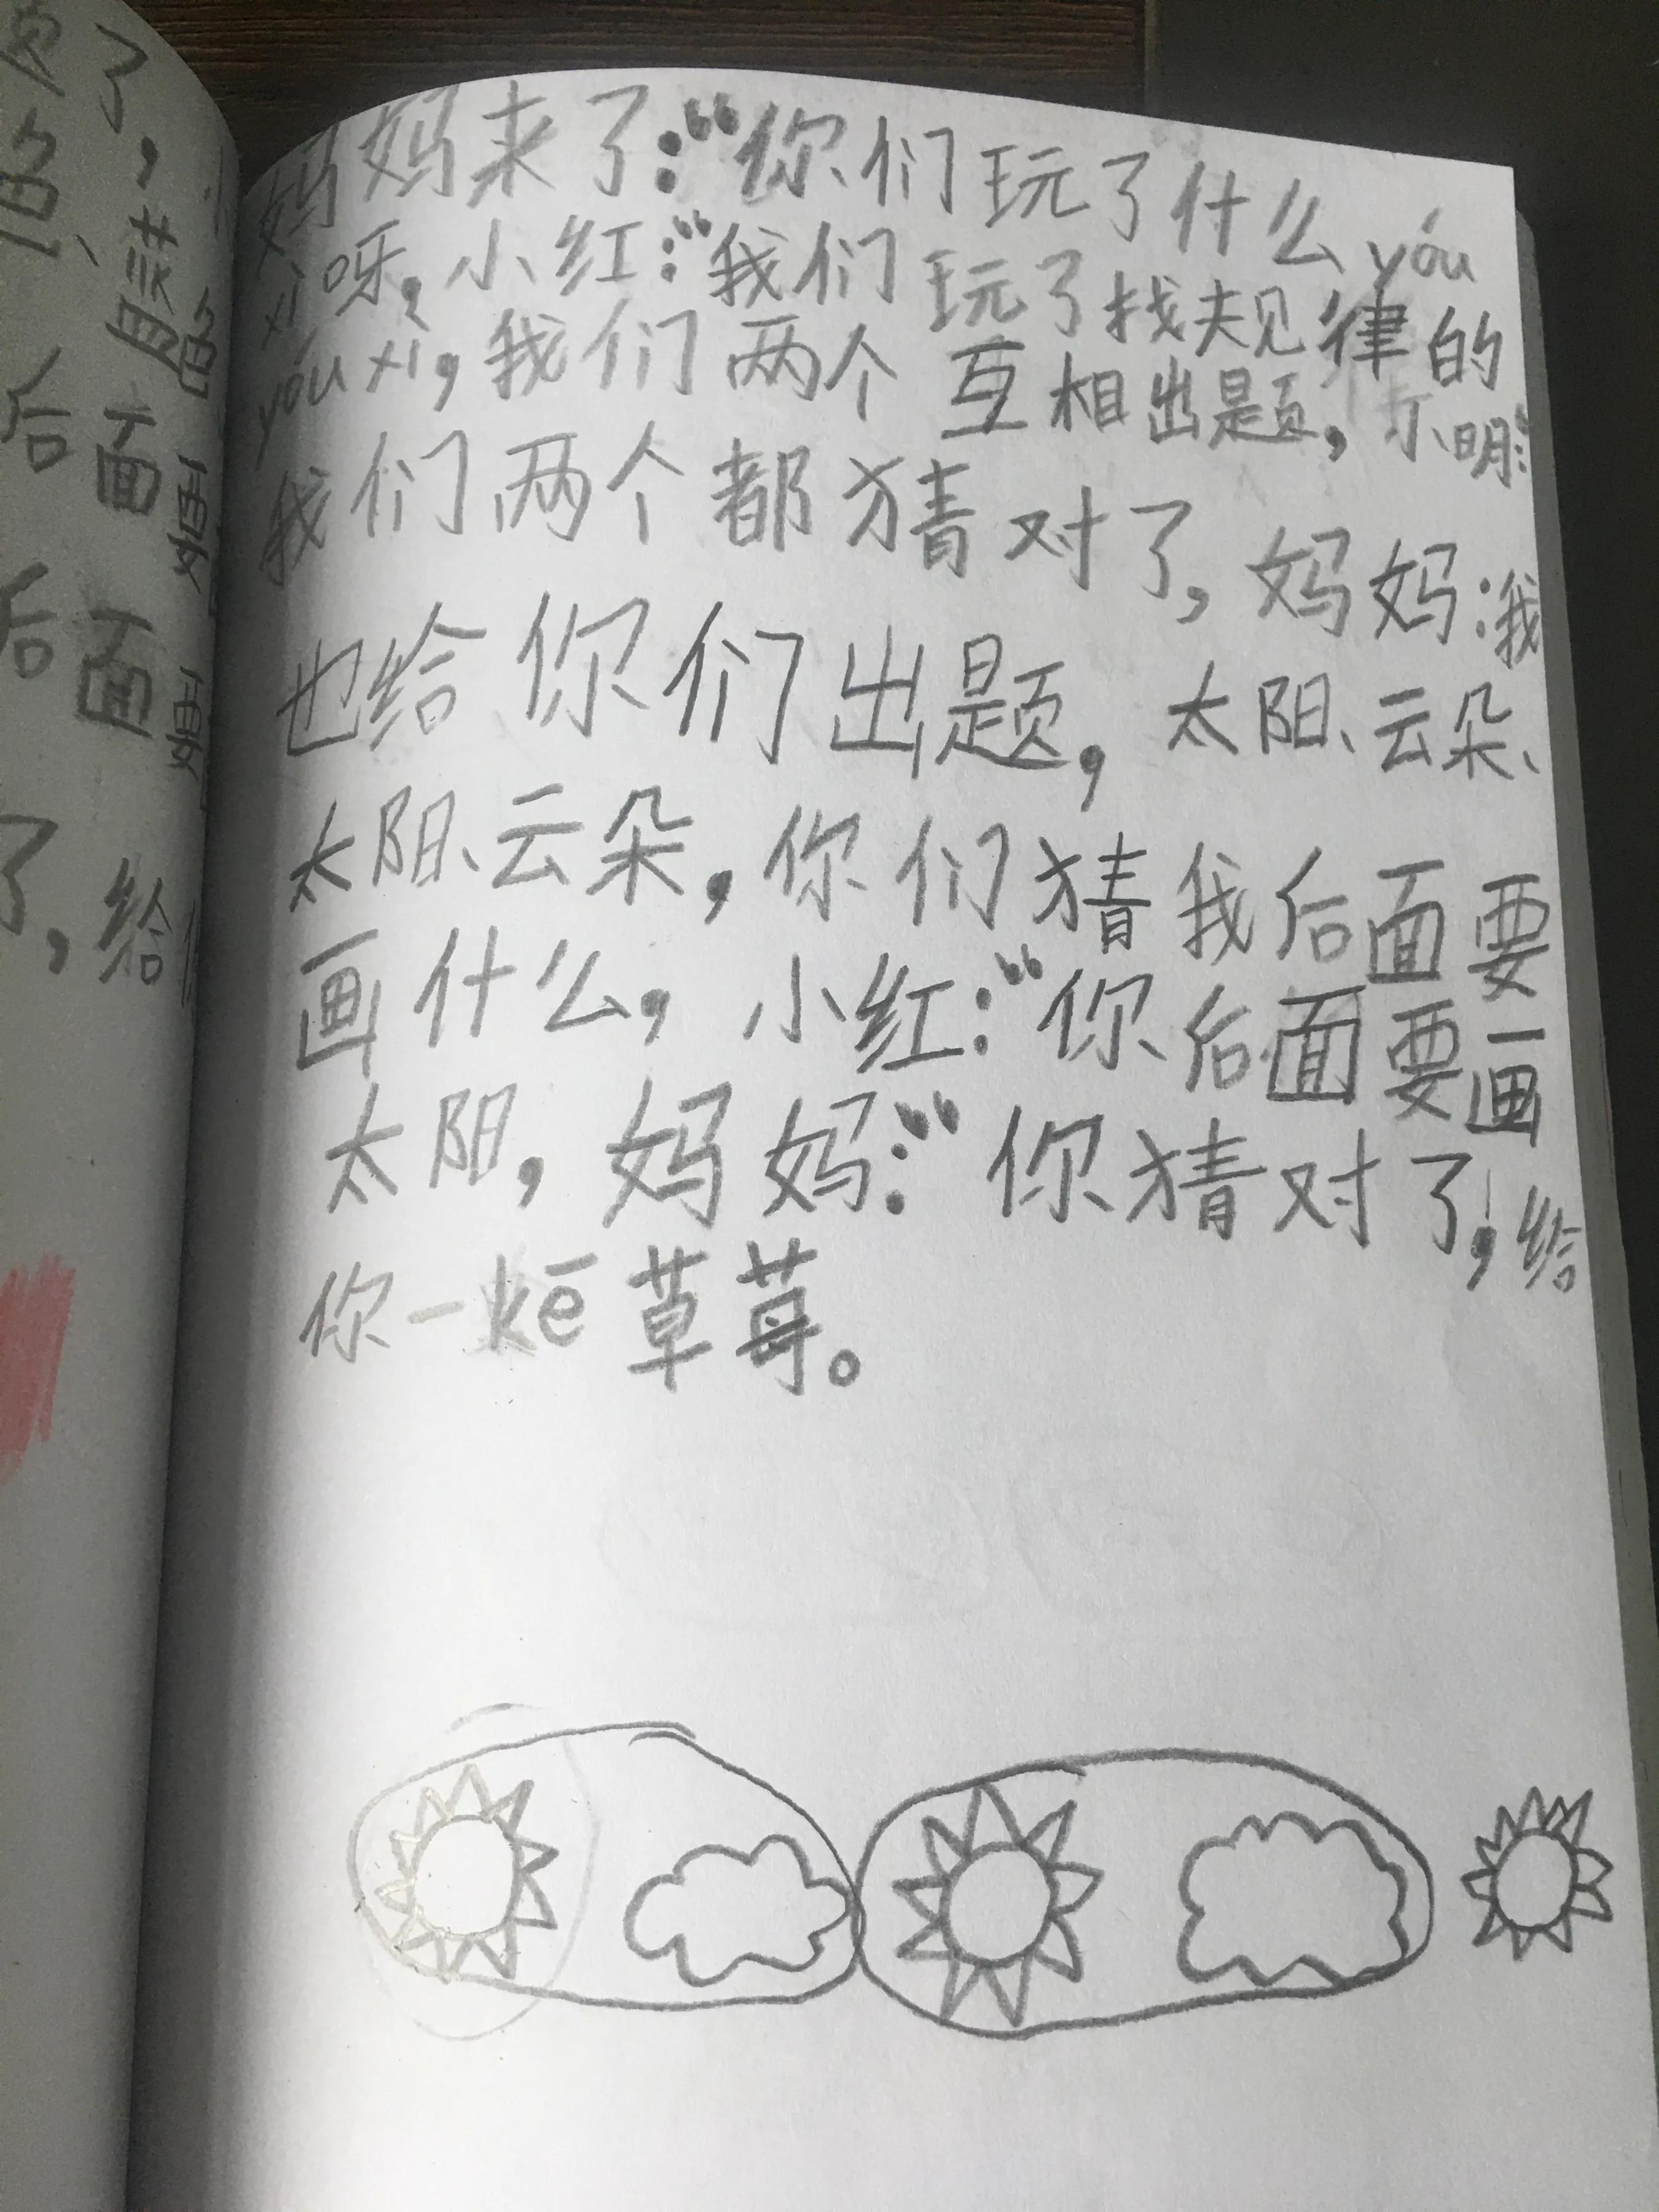 了,
蓝色
后面要
后面要
了,给
妈妈来了:“你们玩了什么yóu
xì呀,小红:“我们玩了找规律的
yóuxì,我们两个互相出题,小明:
我们两个都猜对了,妈妈:我
也给你们出题,太阳、云朵、
太阳、云朵,你们猜我后面要
画什么,小红:“你后面要画
太阳,妈妈:“你猜对了,给
你一kē草莓。